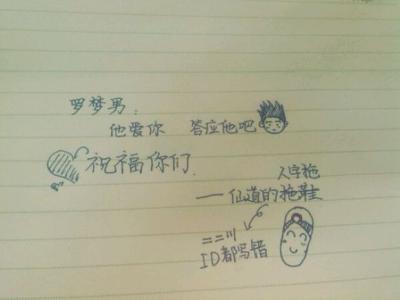 罗梦男：
他爱你 答应他吧
祝福你们.
人字拖
——仙道的拖鞋
==)||
ID都写错